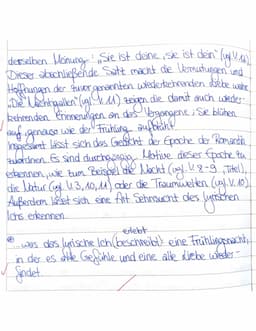 derselben Meinung. „Sie ist deine, sie ist dein" (vgl. V. 12)
Dieser abschließende Satz macht die Vermutungen und
Hoffnungen der zuvor genannten wiederkehrenden Liebe wahr.
„Die Nachtigallen" (vgl. V. 11) zeigen die damit auch wieder-
kehrenden Erinnerungen an das Vergangene; Sie blühen
auf, genauso wie der Frühling aufblüht.
Insgesamt lässt sich das Gedicht der Epoche der Romantik
zuordnen. Es sind durchgängig Motive dieser Epoche zu
erkennen, wie zum Beispiel die Nacht (vgl. V. 8-9, Titel),
die Natur (vgl. V. 3, 10, 11) oder die Traumwelten (vgl. V. 10).
Außerdem lässt sich eine Art Sehnsucht des lyrischen
Ichs erkennen.
erlebt
... was das lyrische Ich (beschreibt) eine Frühlingsnacht,
in der es alte Gefühle und eine alte Liebe wieder-
findet.